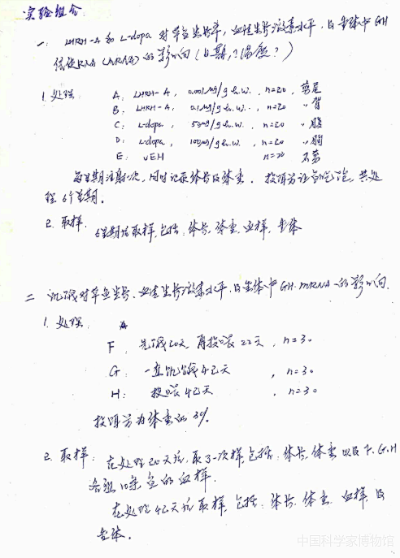 实验组合
一、LHRH-A 和 L-dopa 对草鱼生长率，血清生长激素水平，及垂体中GH
信使RNA (mRNA) 的影响（日期，？温度？）
1. 处理：
A、LHRH-A，0.01μg/g b.w.，n=20，剪尾
B、LHRH-A，0.1μg/g b.w.，n=20 〃背
C、L-dopa，50μg/g b.w.，n=20 〃腹
D、L-dopa，100μg/g b.w.，n=20 〃胸
E、VEH n=20
每星期注射一次，同时记录体长及体重。
程6个星期。
2. 取样：
6星期后取样，包括，体长，体重，血样，垂体
二 饥饿对草鱼生长，血清生长激素水平，及垂体中GH mRNA的影响
1. 处理
F、先饥饿20天 再投喂22天，n=30
G：一直饥饿42天，n=30
H：投喂42天，n=30
投饵量为体重的3%。
2. 取样：在处理20天后，取一次样，包括，体长，体重以及F、G、H
各组10条鱼的血样。
在处理42天后取样，包括，体长，体重，血样及
垂体。
中国科学家博物馆